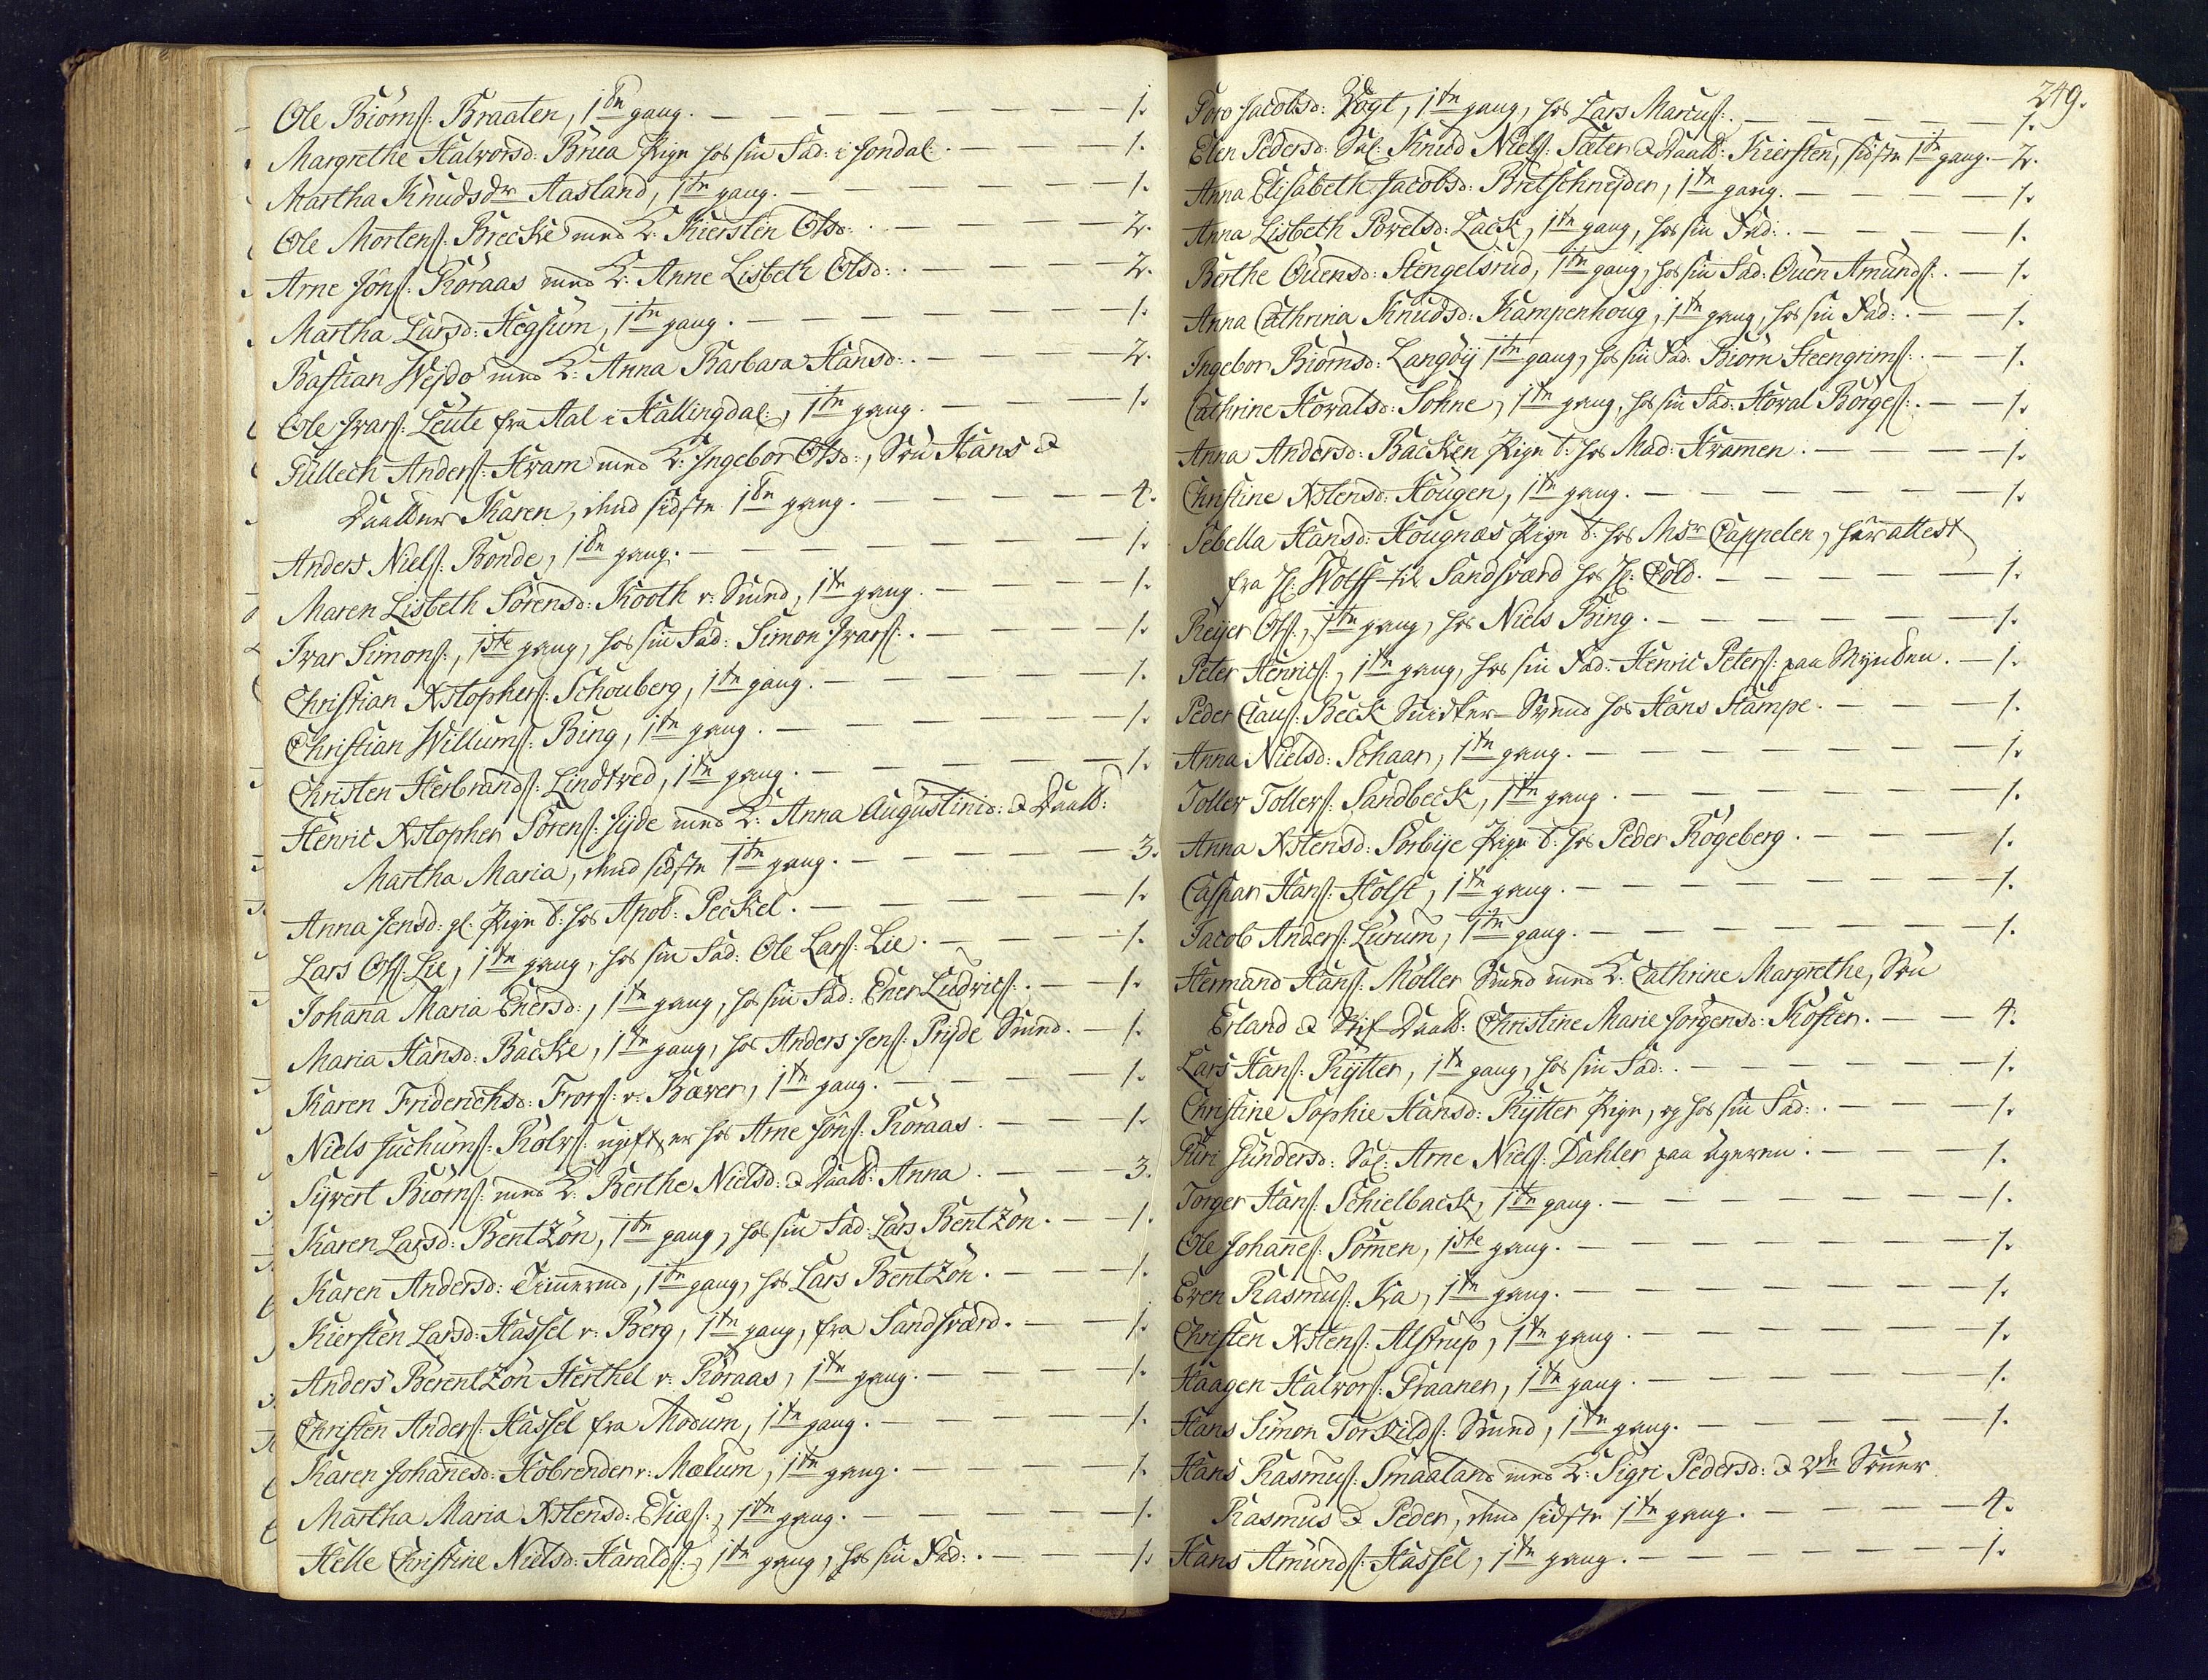 Ole Biörns: Braaten, 1te gang. — 1.
Margrethe Halvorsd: Brua Pige hos sin Fad: i Jondal. — 1.
Martha Knudsdr Aasland, 1te gang. — 1.
Ole Mortens: Brecke med K: Kiersten Olsd: — 2.
Arne Jöns: Röraas med K: Anne Lisbeth Olsd: — 2.
Martha Larsd: Hegsum, 1te gang. — 1.
Bastian Wejdo med K: Anna Barbara Hansd: — 2.
Ole Ivars: Leute fra Aal i Hallingdal:, 1te gang. — 1.
Gullech Anders: Hvam med K: Ingebor Olsd:, Sön Hans &
Daatter Karen, ehnd sidste 1te gang. — 4.
Anders Niels: Bonde, 1te gang. — 1.
Maren Lisbeth Sörensd: Kooth v: Smed, 1te gang. — 1.
Ivar Simons:, 1ste gang, hos sin Fad: Simon Ivars: — 1.
Christian Xstophers: Schouberg, 1te gang. — 1.
Christian Willums: Bing, 1te gang. — 1.
Christen Herbrands: Lindtved, 1te gang. — 1.
Henric Xstopher Sörens: Jyde med K: Anna Augustinid: & Daatt:
Martha Maria, ehnd sidste 1te gang. — 3.
Anna Jensd: gl. Pige t: hos Apot: Peckel. — 1.
Lars Ols: Lie, 1te gang, hos sin Fad: Ole Lars: Lie. — 1.
Johana Maria Enersd:, 1te gang, hos sin Fad: Ener Ludvics: — 1.
Maria Hansd: Backe, 1te gang, hos Anders Jens: Prijde Smed. — 1.
Karen Friderichsd: Frors: v: Bæver, 1te gang. — 1.
Niels Juchums: Rolvs: ugift, er hos Arne Jöns: Röraas. — 1.
Syvert Biörns: med K: Berthe Nielsd: & Daatt: Anna. — 3.
Karen Larsd: Bentzön, 1te gang, hos sin Fad: Lars Bentzön. — 1.
Karen Andersd: Timermd, 1te gang, hos Lars Bentzön. — 1.
Kiersten Larsd: Hassel v: Berg, 1te gang, fra Sandsværd. — 1.
Anders Berentzön Herthel v: Röraas, 1te gang. — 1.
Christen Anders: Hassel fra Modum, 1te gang. — 1.
Karen Johanesd: Hobrender v: Mælum, 1te gang. — 1.
Martha Maria Xstensd: Elias:, 1te gang. — 1.
Helle Christine Nielsd: Haralds:, 1te gang, hos sin Fad: — 1.
249.
Toro Jacobsd: Vogt, 1te gang, hos Lars Marcus: — 1.
Elen Pedersd: Sal: Knud Niels: Sæter & Daatt: Kiersten, sidste 1te gang. — 2.
Anna Elisabeth Jacobsd: Bretschnejder, 1te gang. — 1.
Anna Lisbeth Povelsd: Lack, 1te gang, hos sin Fad: — 1.
Berthe Ouensd: Stengelsrud, 1te gang, hos sin Fad: Ouen Amunds: — 1.
Anna Cathrina Knudsd: Kampenhoug, 1te gang, hos sin Fad: — 1.
Ingebor Biörnsd: Langöij 1te gang, hos sin Fad: Biörn Steengrims: — 1.
Cathrine Hovalsd: Sohne, 1te gang, hos sin Fad: Hoval Börges: — 1.
Anna Andersd: Backen Pige t: hos Mad: Hvamen. — 1.
Christine Xstensd: Hougen, 1te gang. — 1.
Sebella Hansd: Hougnæs Pige t: hos Msr Cappelen, har attest
fra H: Wolff til Sandsværd hos H: Cold. — 1.
Reijer Ols:, 1te gang, hos Niels Bing. — 1.
Peter Henrics:, 1te gang, hos sin Fad: Henric Peters: paa Mynden. — 1.
Peder Claus: Beck Snidker-Svend hos Hans Stampe. — 1.
Anna Nielsd: Schaar, 1te gang. — 1.
Toller Tollers: Sandbeck, 1te gang. — 1.
Anna Xstensd: Sørbije Pige t: hos Peder Rögeberg. — 1.
Caspar Hans: Holst, 1te gang. — 1.
Jacob Anders: Lurum, 1te gang. — 1.
Hermand Hans: Möller Smed med K: Cathrine Margrethe, Sön
Erland & Stif-Daatt: Christine Marie Jörgensd: Köster. — 4.
Lars Hans: Rytter, 1te gang, hos sin Fad: — 1.
Christine Sophie Hansd: Rytter Pige, og hos sin Fad: — 1.
Guri Gundersd: Sal: Arne Niels: Dahler paa Ageren. — 1.
Torger Hans: Schielback, 1te gang. — 1.
Ole Johanes: Sömen, 1ste gang. — 1.
Even Rasmus: Ka, 1te gang. — 1.
Christen Xstens: Alstrup, 1te gang. — 1.
Haagen Halvors: Graanen, 1te gang. — 1.
Hans Simon Torkilds: Smed, 1te gang. — 1.
Hans Rasmus: Smaaland med K: Sigri Pedersd: & 2de Söner
Rasmus & Peder, ehnd sidste 1te gang. — 4.
Hans Amunds: Hassel, 1te gang. — 1.